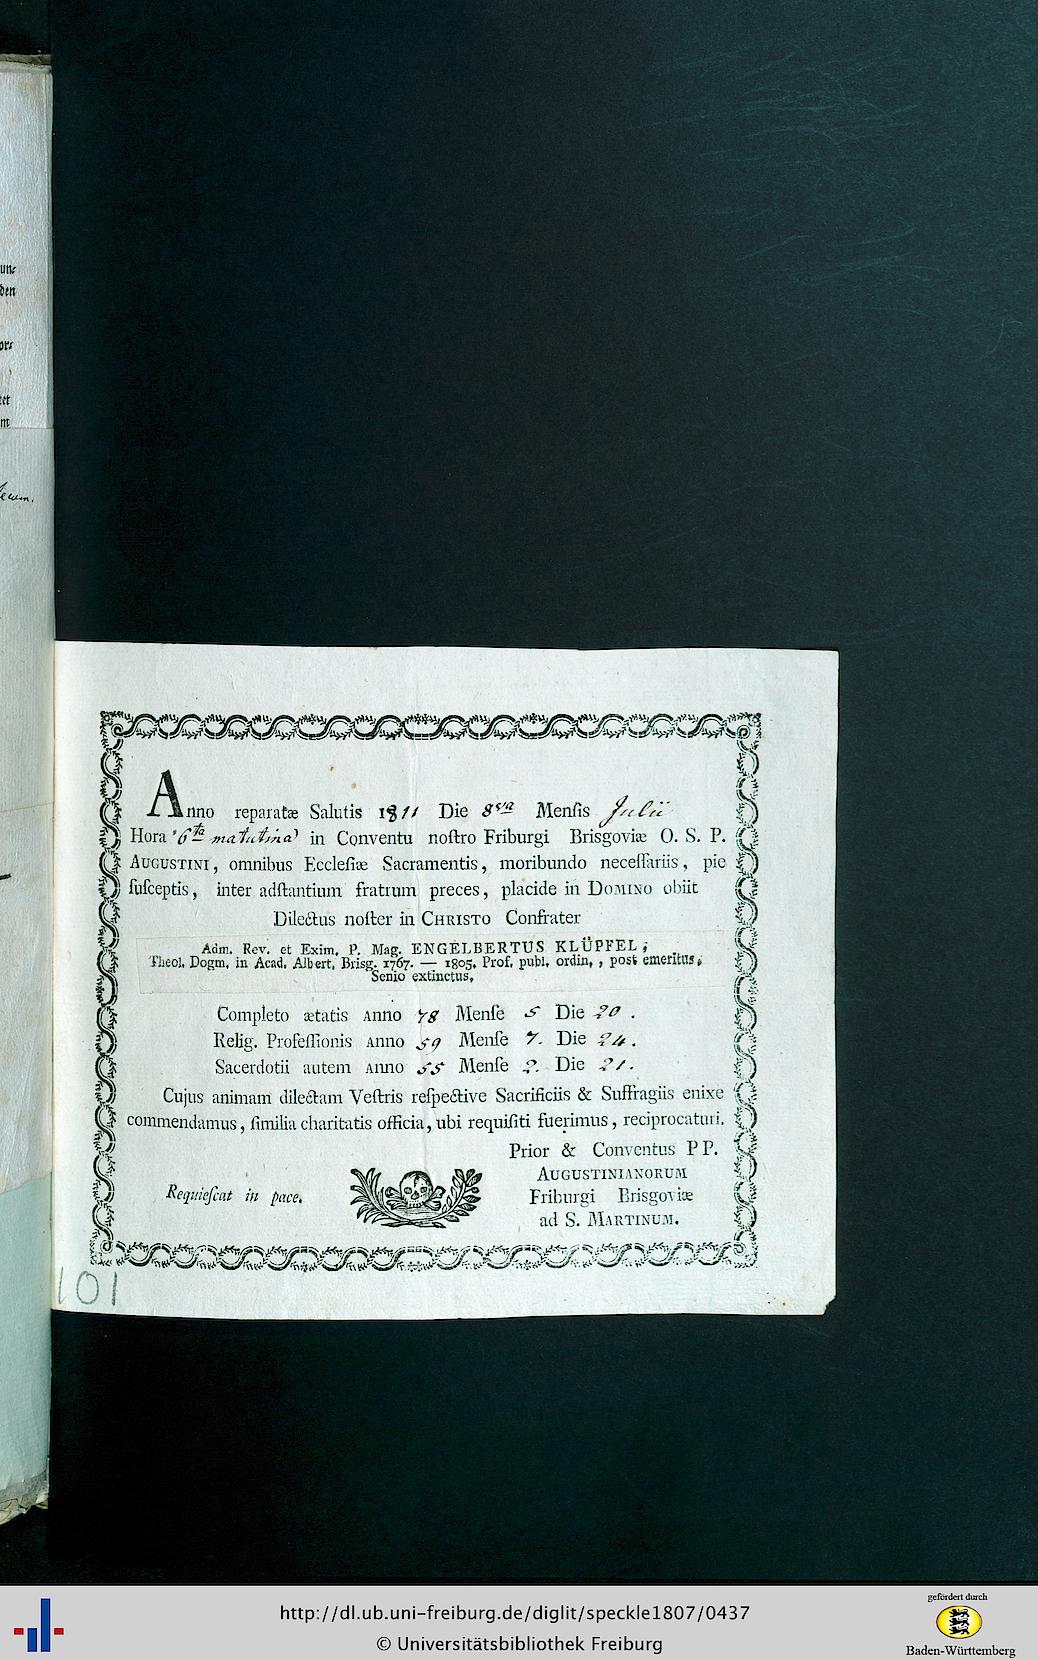 un⸗
den
or⸗
tet
m
Anno reparatæ Salutis 1811 Die 8va Menſis Julii
Hora 6ta matutina in Conventu noſtro Friburgi Brisgoviæ O. S. P.
AUGUSTINI, omnibus Eccleſiæ Sacramentis, moribundo neceſſariis, pie
ſuſceptis, inter adſtantium fratrum preces, placide in DOMINO obiit
Dilectus noſter in CHRISTO Confrater
Adm. Rev. et Exim. P. Mag. ENGELBERTUS KLÜPFEL;
Theol. Dogm. in Acad. Albert. Brisg. 1767. — 1805. Prof. publ. ordin., post emeritus,
Senio extinctus.
Completo ætatis ANNO 78 Menſe 5 Die 20.
Relig. Profeſſionis ANNO 59 Menſe 7. Die 24.
Sacerdotii autem ANNO 55 Menſe 2. Die 21.
Cujus animam dilectam Veſtris reſpective Sacrificiis & Suffragiis enixe
commendamus, ſimilia charitatis officia, ubi requiſiti fuerimus, reciprocaturi.
Prior & Conventus PP.
AUGUSTINIANORUM
Requieſcat in pace. Friburgi Brisgoviæ
ad S. MARTINUM.
101
http://dl.ub.uni-freiburg.de/diglit/speckle1807/0437
© Universitätsbibliothek Freiburg
gefördert durch
Baden-Württemberg